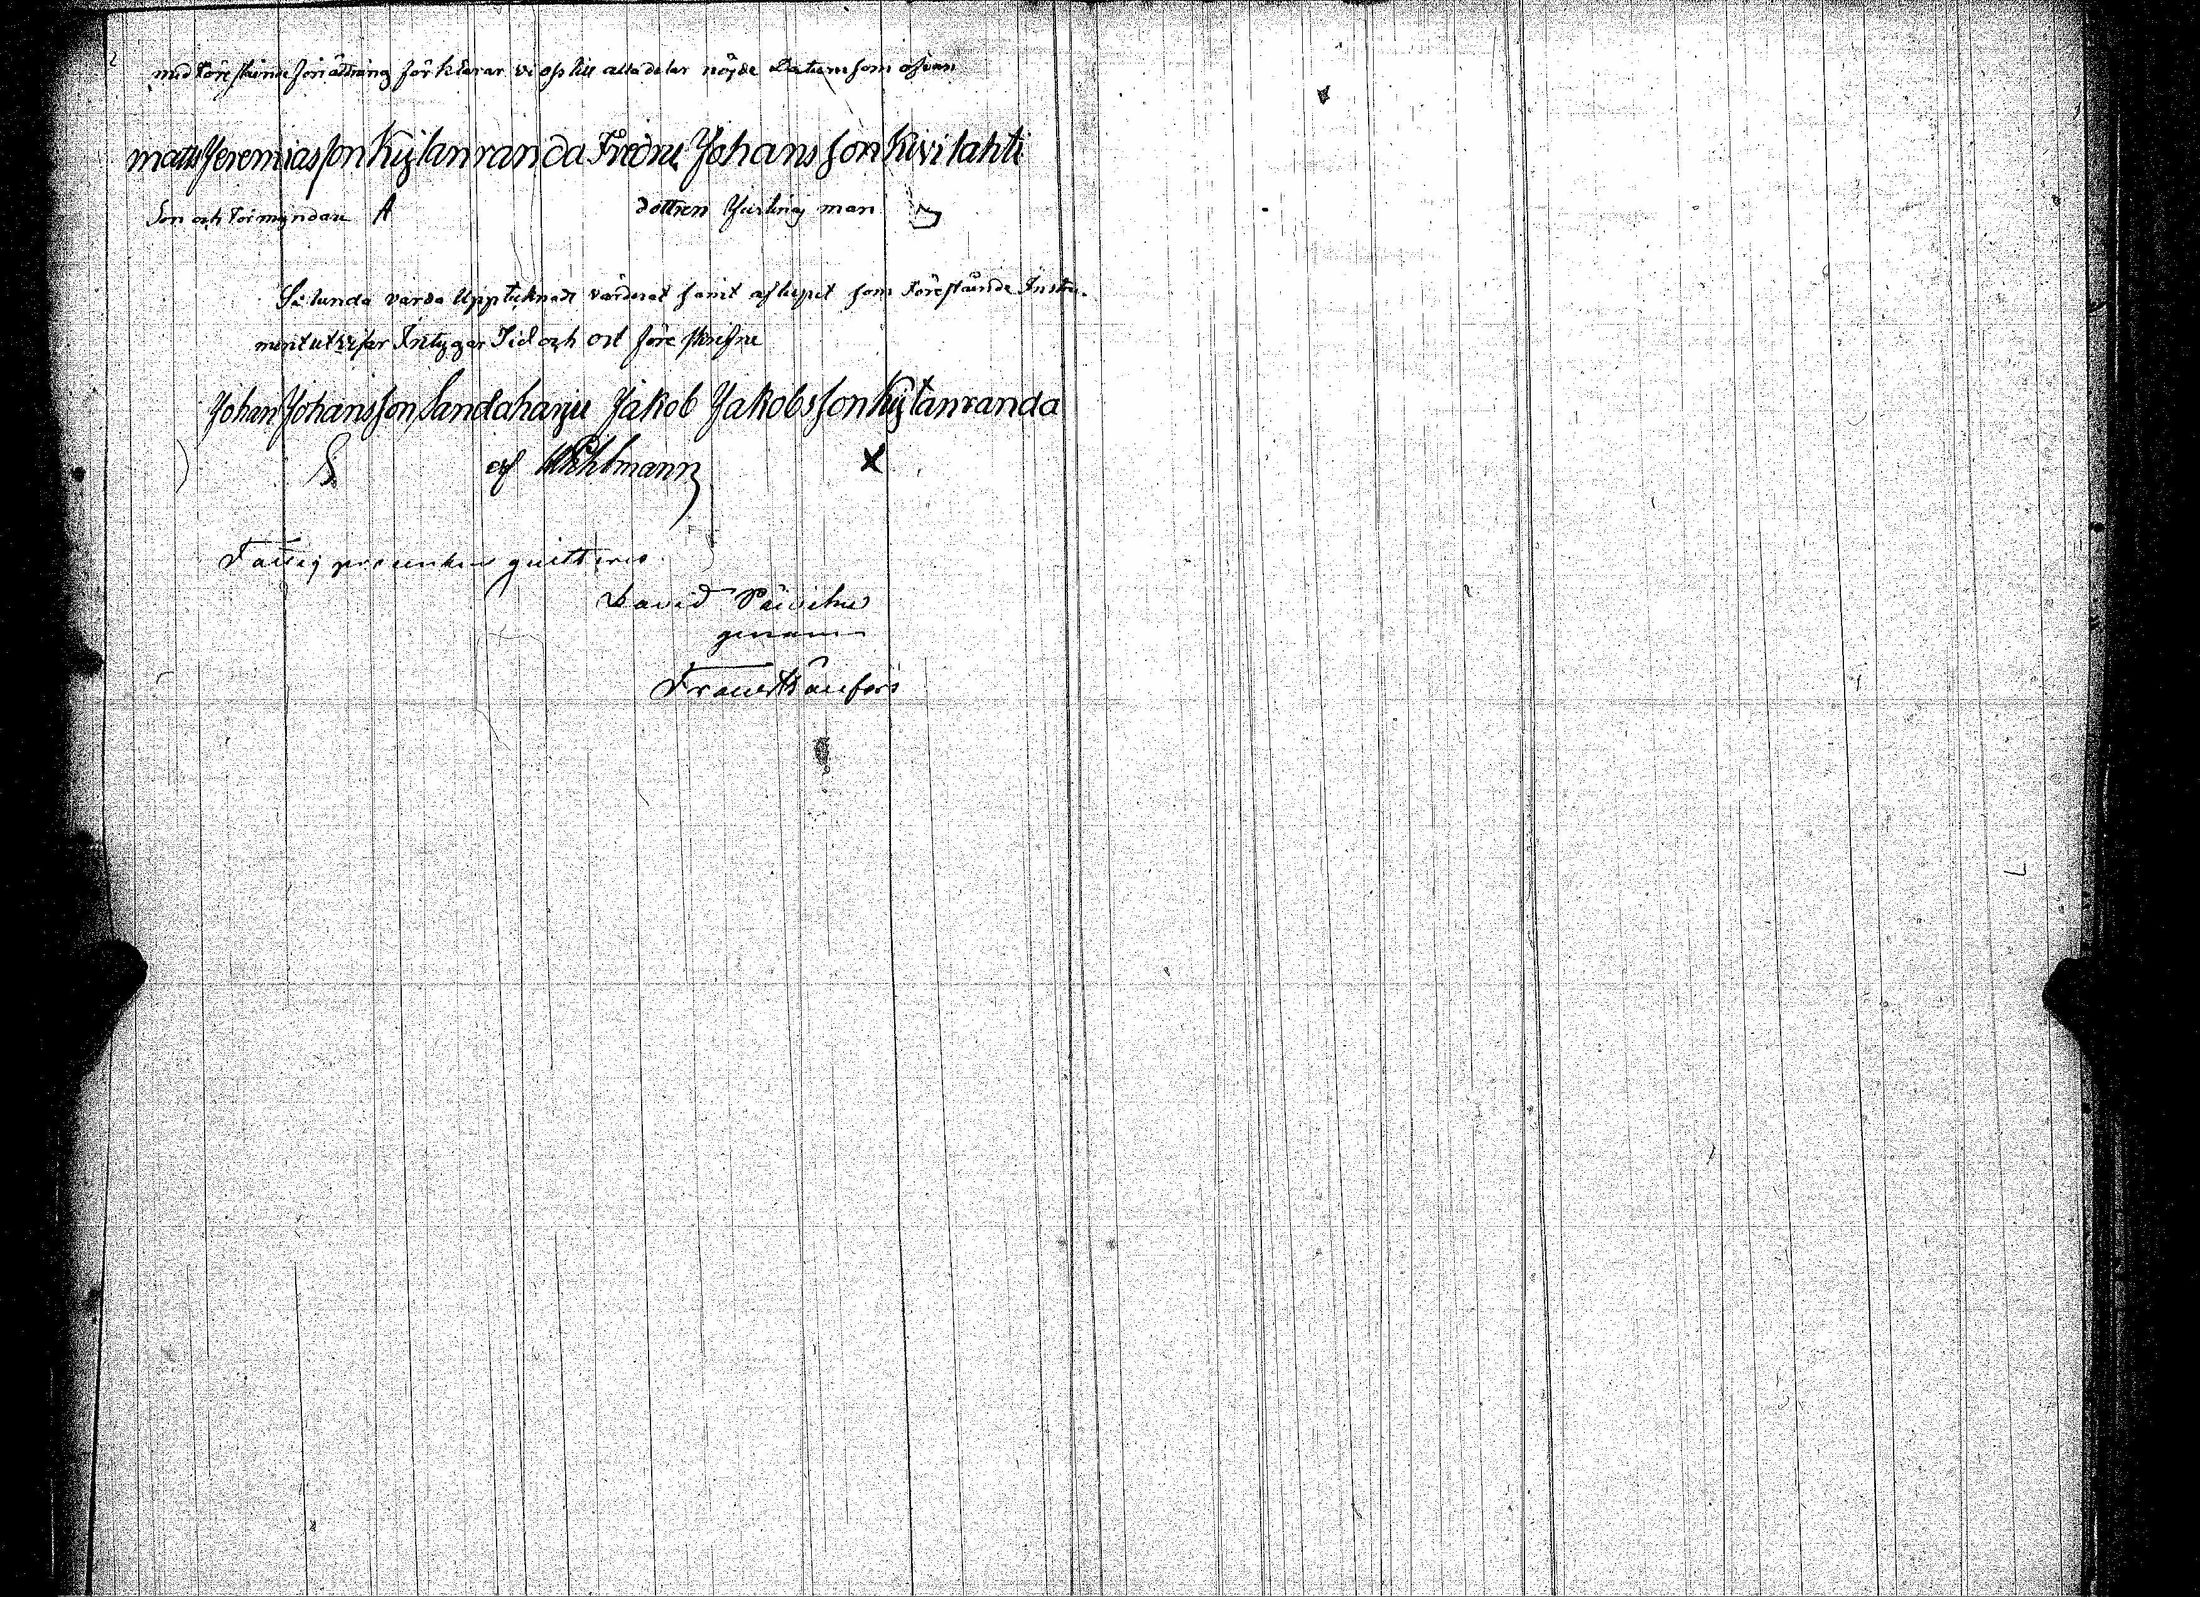 med före stående förrättning förklarar vi oss till alla delar nöjde Datum som ofvan
Matts Jeremiasson Kylanranda Fredric Johansson Kivilahti
Son och Förmyndare A dottren Jurling man
Sålunda varda Uppteknadt värderat samt aflupit som Föreståndde Instru-
ment utvisar Intygar Tid och ort före skrefne
Johan Johansson Sandaharju Jakob Jakobsson Kylanranda
af Wihlmann X
Fattig procenten quitteras
David Päivike
genom